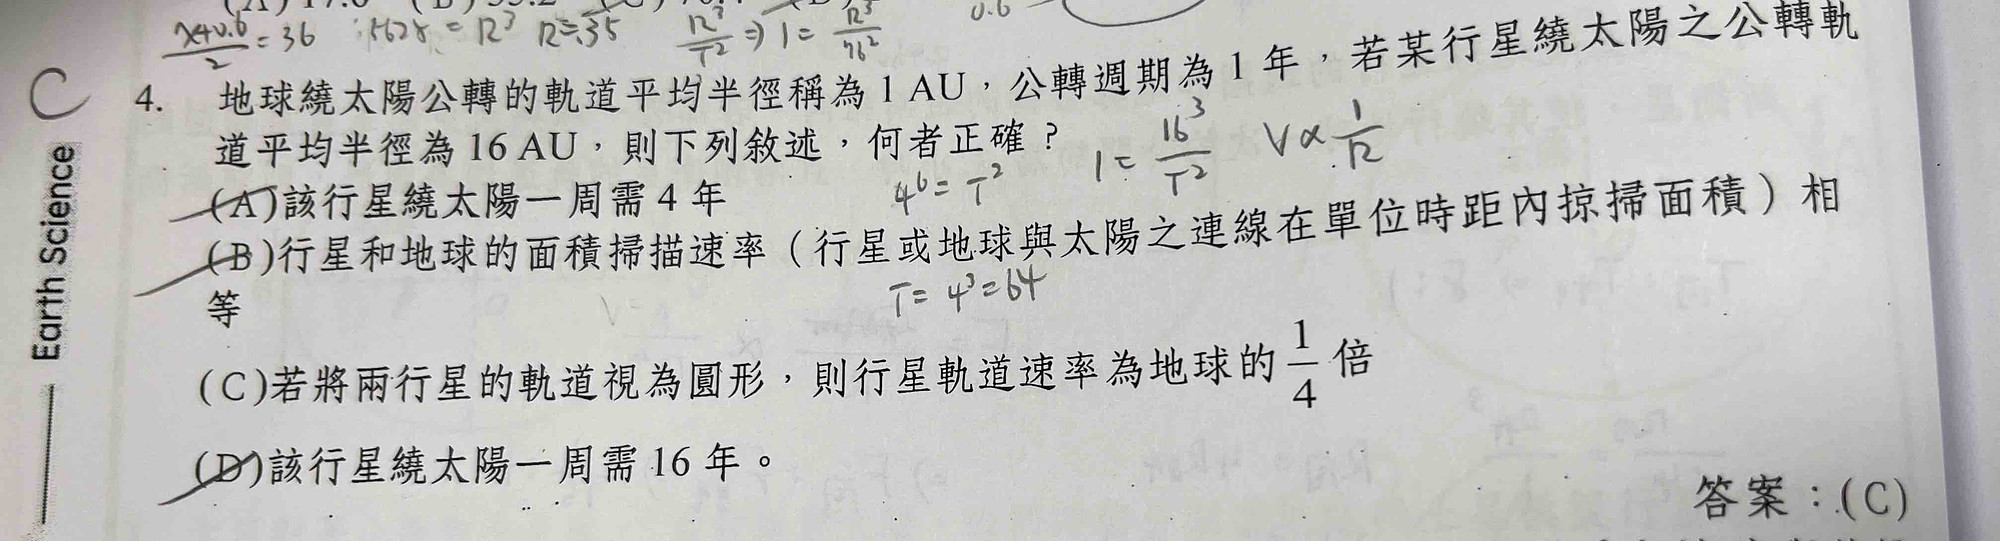 x+0.6/2 = 36 R≒35 R³/T² ⇒ 1 = R³/76² 0.6
C
4. 地球繞太陽公轉的軌道平均半徑稱為 1 AU，公轉週期為 1 年，若某行星繞太陽之公轉軌
道平均半徑為 16 AU，則下列敘述，何者正確？
1 = 16³/T² V∝1/R
(A)該行星繞太陽一周需 4 年
4⁶ = T²
(B)行星和地球的面積掃描速率（行星或地球與太陽之連線在單位時距內掠掃面積）相
等
T = 4³ = 64
(C)若將兩行星的軌道視為圓形，則行星軌道速率為地球的 1/4 倍
(D)該行星繞太陽一周需 16 年。
答案：(C)
Earth Science